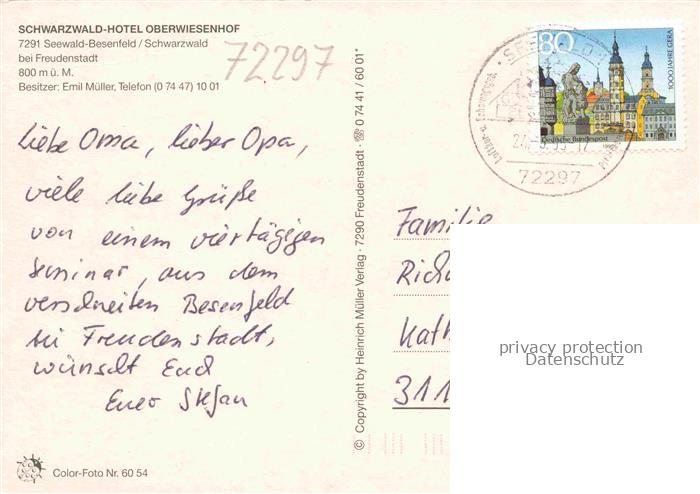 SCHWARZWALD-HOTEL OBERWIESENHOF
7291 Seewald-Besenfeld / Schwarzwald
bei Freudenstadt
800 m ü. M.
Besitzer: Emil Müller, Telefon (0 74 47) 10 01
72297
Liebe Oma, lieber Opa,
viele liebe Grüße
von einem viertägigen
Seminar, aus dem
verschneiten Besenfeld
bei Freudenstadt,
wünscht Euch
Euer Stefan
Color-Foto Nr. 60 54
© Copyright by Heinrich Müller Verlag · 7290 Freudenstadt · ☏ 0 74 41 / 60 01*
SEEWALD
Luftkur- u.
72297
80
1000 JAHRE GERA
Deutsche Bundespost
Familie
Rich
Kath
311
privacy protection
Datenschutz